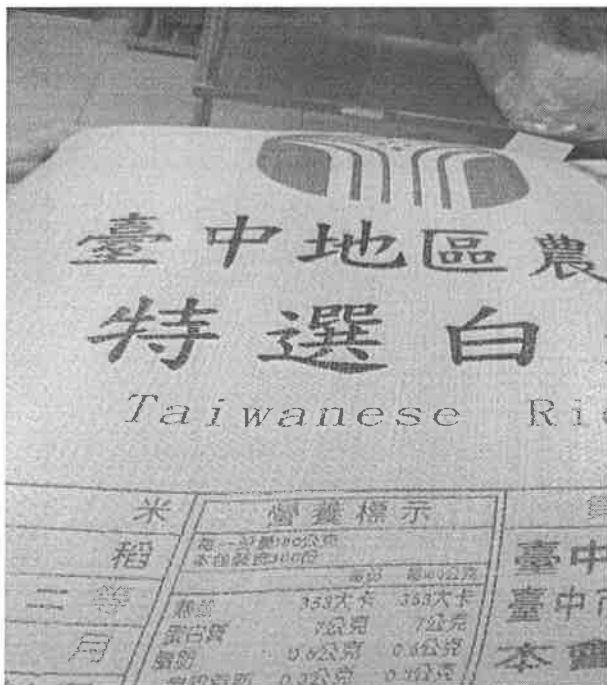 臺中地區農
特選白
Taiwanese Ri
米
稻
二等
月
營養標示
每一份量100公克
本包裝含300份
每份 每100公克
熱量 353大卡 353大卡
蛋白質 7公克 7公克
脂肪 0.6公克 0.6公克
臺中
臺中市
本